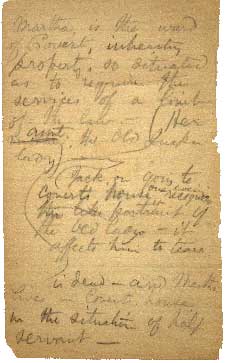 Martha, is the ward
of Covert, inheriting
property, so situated
as to require the
services of a limb
of the law — (Her
aunt, the Old Quaker
lady)
Jack on going to
Covert's house one evening recognizes
portrait of
the old lady — it
affects him to tears
is dead — and Martha
lives in Covert's house
in the situation of half
servant —